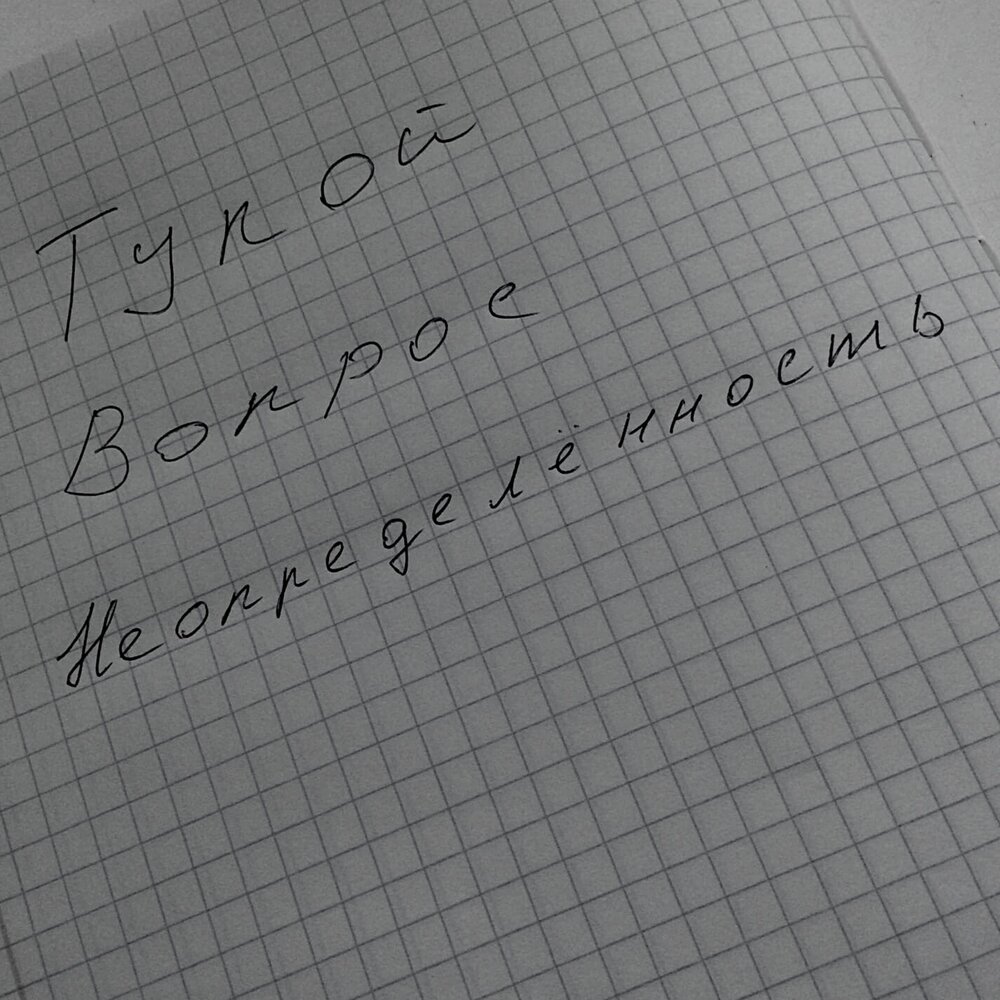 Тупой
Вопрос
Неопределённость